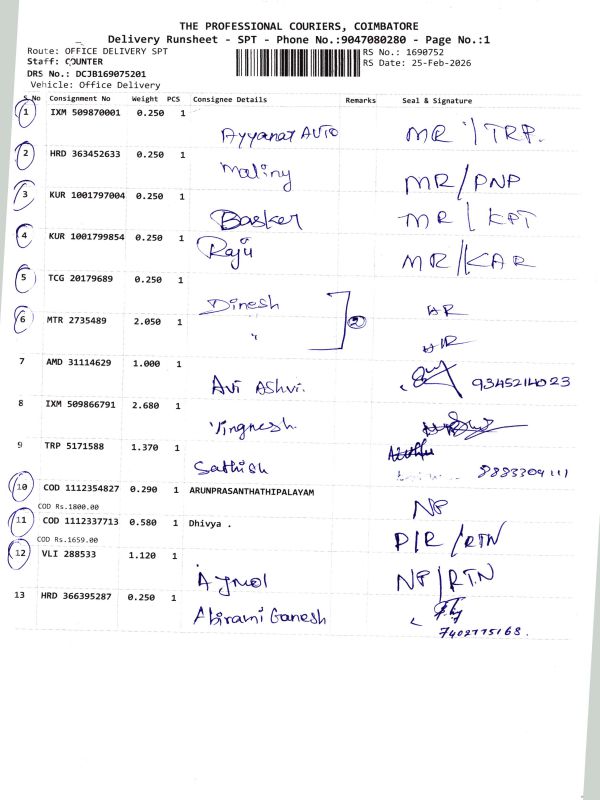 THE PROFESSIONAL COURIERS, COIMBATORE
Delivery Runsheet - SPT - Phone No.:9047080280 - Page No.:1
Route: OFFICE DELIVERY SPT RS No.: 1690752
Staff: COUNTER RS Date: 25-Feb-2026
DRS No.: DCJB169075201
Vehicle: Office Delivery
S.No Consignment No Weight PCS Consignee Details Remarks Seal & Signature
1 IXM 509870001 0.250 1
Ayyanar AUTO MR / TRP.
2 HRD 363452633 0.250 1
maliny MR/PNP
3 KUR 1001797004 0.250 1
Basker MR / KPT
4 KUR 1001799854 0.250 1
Raju MR/KAR
5 TCG 20179689 0.250 1
Dinesh 2
6 MTR 2735489 2.050 1
"
7 AMD 31114629 1.000 1
Avi Ashvi. 9345214023
8 IXM 509866791 2.680 1
Vingnesh
9 TRP 5171588 1.370 1
Sathish 8883304111
10 COD 1112354827 0.290 1 ARUNPRASANTHATHIPALAYAM
COD Rs.1800.00 NP
11 COD 1112337713 0.580 1 Dhivya .
COD Rs.1659.00 P/R /RTN
12 VLI 288533 1.120 1
Ajmol NP/RTN
13 HRD 366395287 0.250 1
Abirami Ganesh
7402775168.